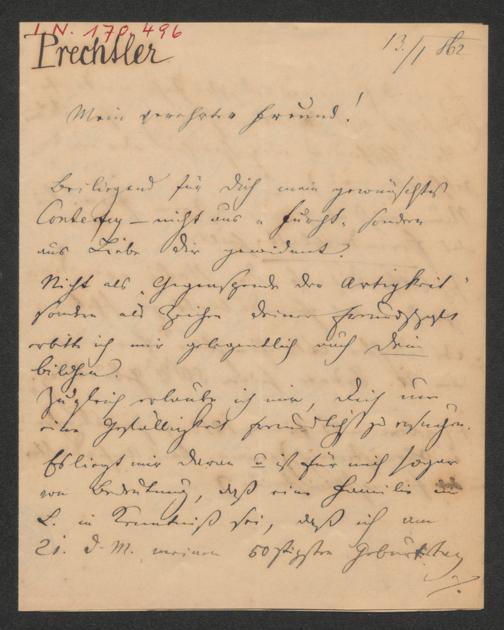 I.N. 170.496
Prechtler
13./1 862
Mein verehrter Freund!
Beiliegend für Dich mein gewünschtes
Conterfey – nicht aus „Furcht“ sondern
aus Liebe Dir gewidmet.
Nicht als „Gegenspende der Artigkeit“
sondern als Zeichen Deiner Freundschaft
erbitte ich mir gelegentlich auch Dein
bildchen.
Zugleich erlaube ich mir, Dich um
eine Gefälligkeit freundlichst zu ersuchen.
Es liegt mir daran u ist für mich sogar
von Bedeutung, daß eine Familie in
L. in Kenntniß sei, daß ich am
21. d. M. meinen 50stigsten Geburtstag